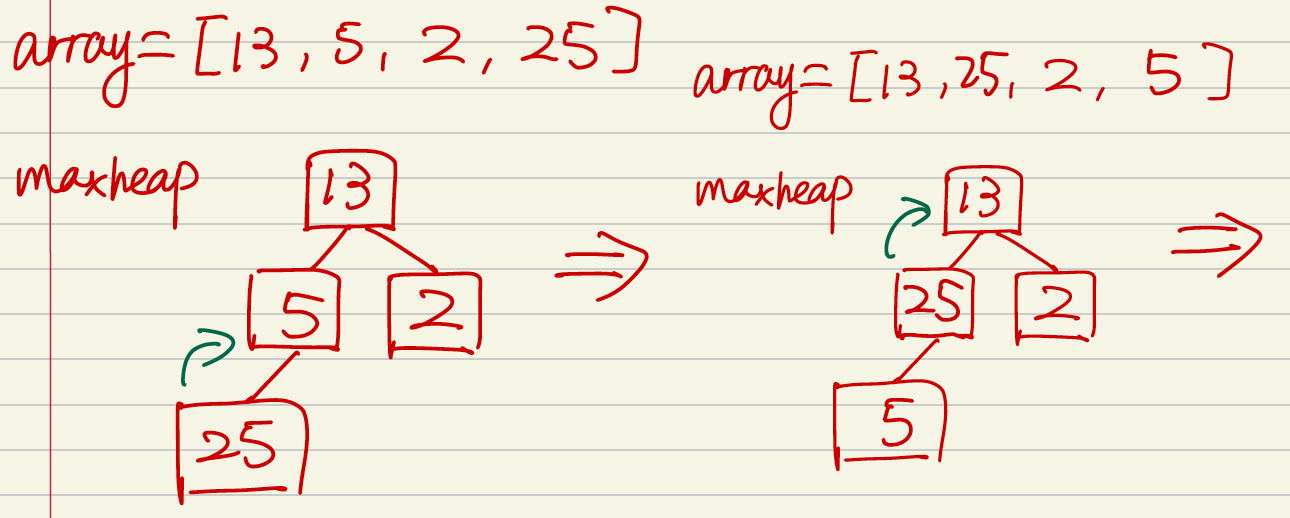 array= [13, 5, 2, 25]
maxheap
13
5 2
25
array= [13, 25, 2, 5]
maxheap
13
25 2
5